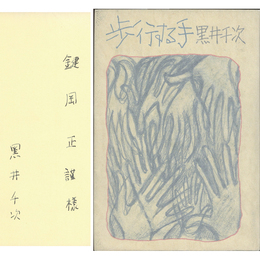 歩行する手 黒井千次
鍵岡正謹様
黒井千次